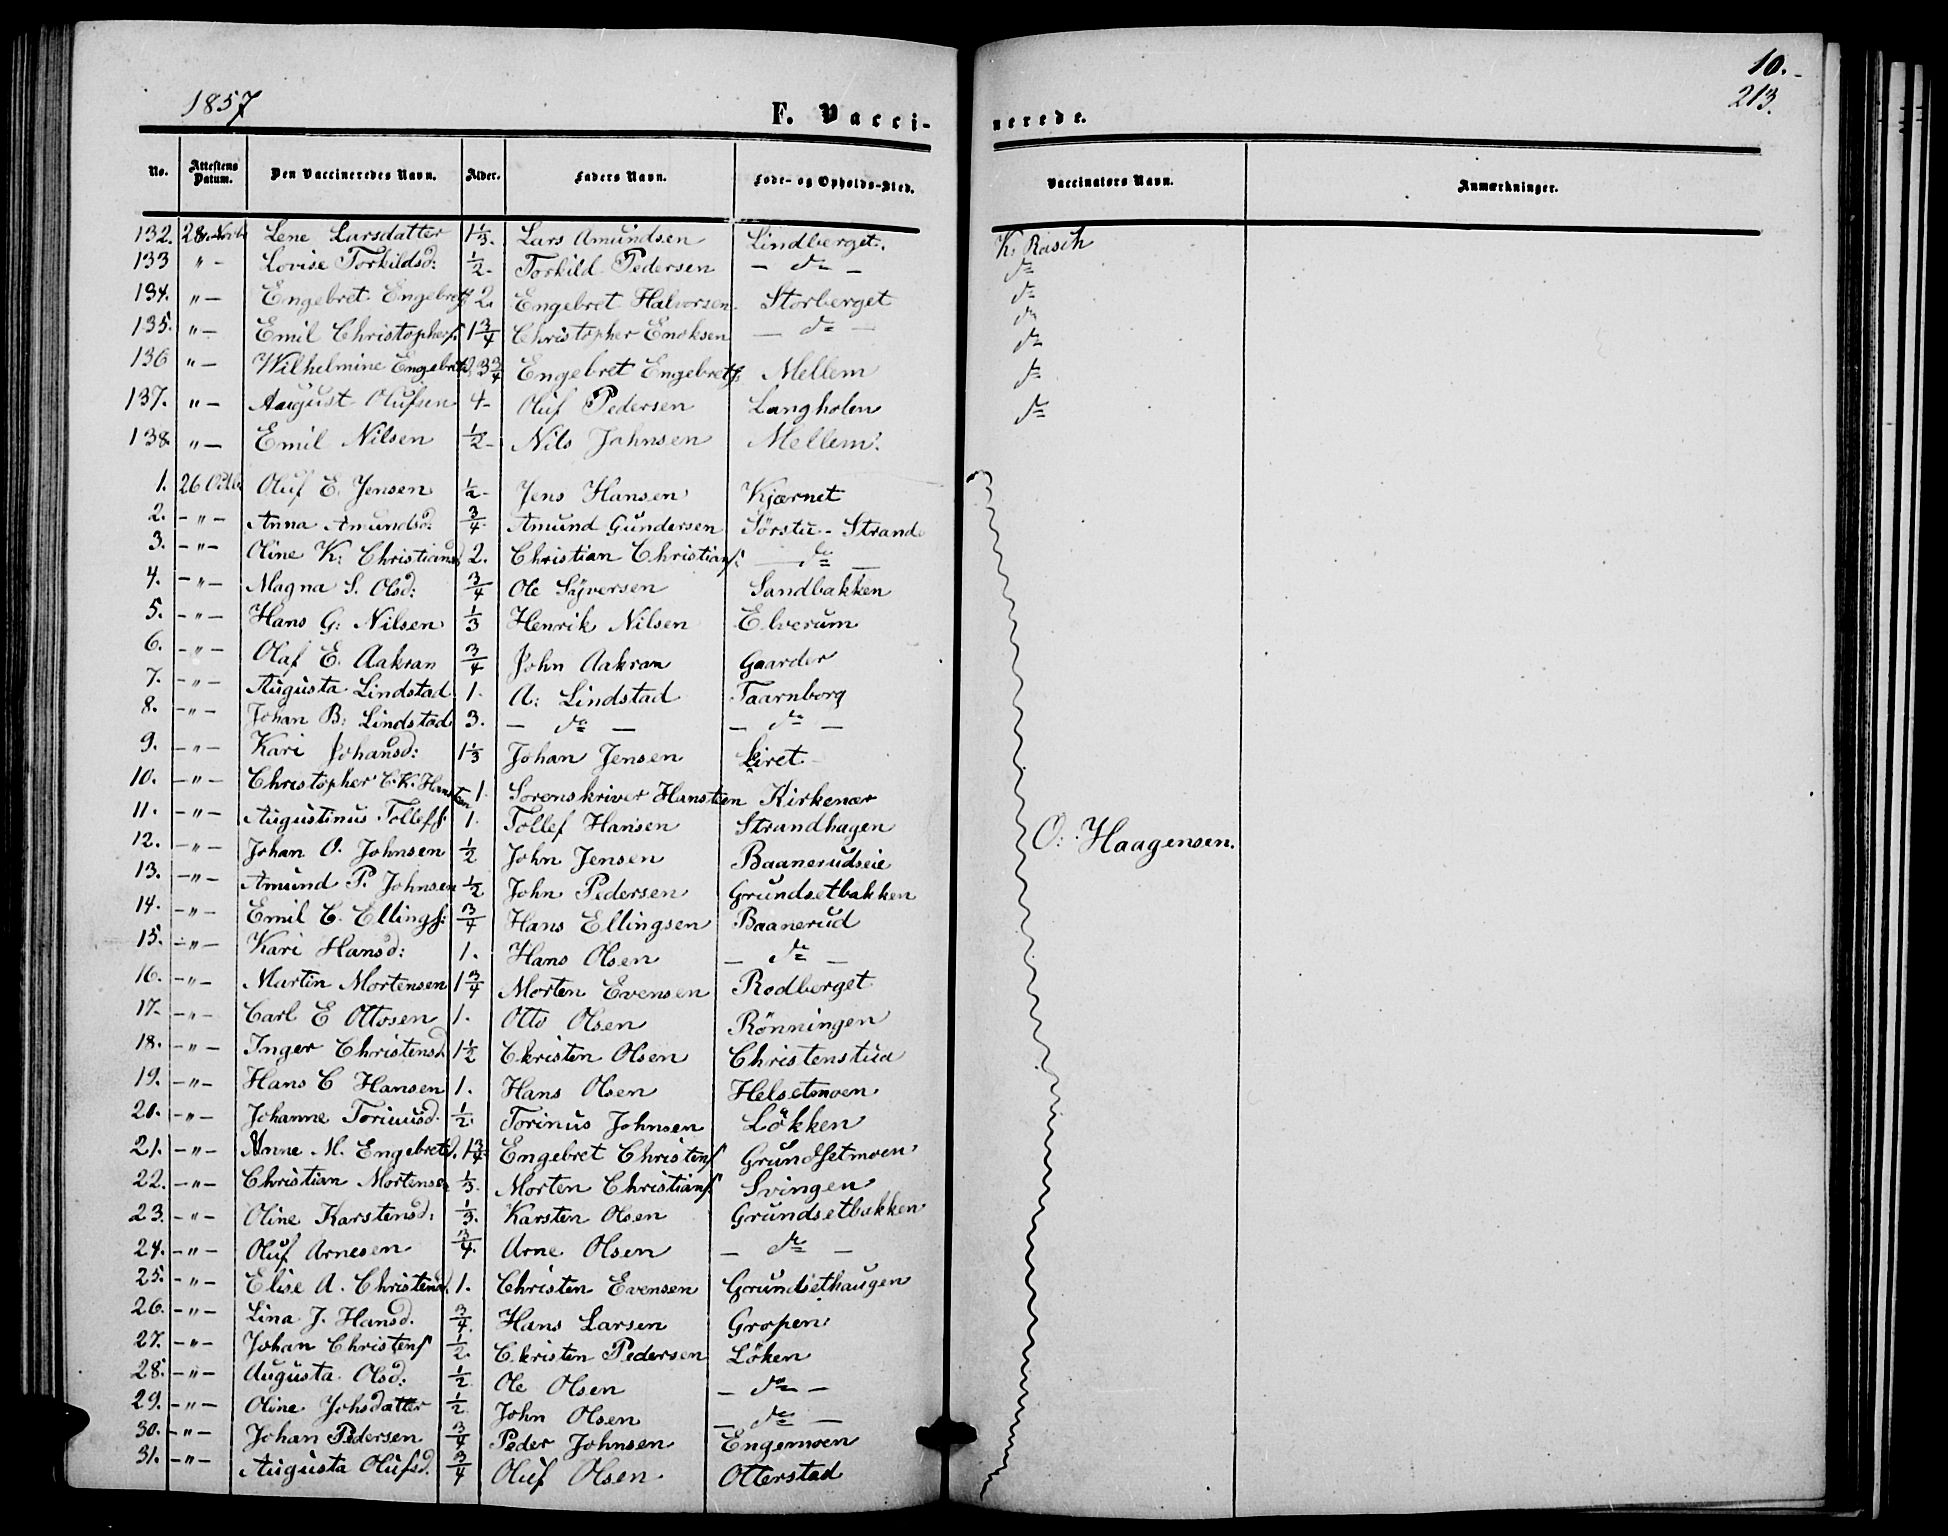 1857
F. Vacci-
nerede.
10.
213.
No. Attestens Datum. Den Vaccineredes Navn. Alder. Faders Navn. Føde- og Opholds-Sted. Vaccinators Navn. Anmærkninger.
132. 28 Novbr Lene Larsdatter 1 1/3. Lars Amundsen Lindberget. K. Rasch
133 " - Lovise Torkildsd: 1/2 - Torkild Pedersen - do - do
134. " - Engebret Engebretf 2. Engebret Halvorsen. Storberget do
135. " - Emil Christophers. 1 3/4 Christopher Enoksen - do - do
136 " - Wilhelmine Engebretsd. 3 3/4 Engebret Engebretf: Mellem do
137. " - August Olufsen 4 - Oluf Pedersen Langholen do
138 " - Emil Nilsen 1/2 - Nils Johnsen Mellem. do
1. 26 Octbr Oluf E. Jensen 1/2 - Jens Hansen Kjærnet
2. - " - Anna Amundsd: 3/4. Amund Gundersen Sørstu - Strand
3. - " - Oline K: Christiansd 2. Christian Christianf: - do -
4. - " - Magna S. Olsd: 3/4 Ole Syversen Sandbakken
5. - " - Hans G: Nilsen 1/3 Henrik Nilsen Elverum
6. - " - Olaf E. Aakran 3/4 John Aakran Gaarder
7. - " - Augusta Lindstad 1. A: Lindstad Taarnborg
8. - " - Johan B: Lindstad 3. - do - - do -
9. - " - Kari Johansd: 1 1/3 Johan Jensen Liret
10. - " - Christopher C. K. Hansteen 1. Sorenskriver Hansteen Kirkenær
11. - " - Augustinus Tollefs: 1. Tollef Hansen Strandhagen
12. - " - Johan O. Johnsen 1/2 John Jensen Baanerudseie O: Haagensen.
13. - " - Amund P. Johnsen 1/2 John Pedersen Grundsetbakken
14. - " - Emil C. Ellingf: 3/4 Hans Ellingsen Baanerud
15. - " - Kari Hansd: 1. Hans Olsen - do -
16. - " - Martin Mortensen 1 3/4 Morten Evensen Rodberget
17. - " - Carl E Ottosen 1. Otto Olsen Rönningen
18. - " - Inger Christensd. 1 1/2 Christen Olsen Christenstua
19. - " - Hans C Hansen 1. Hans Olsen Helsetmoen
20. - " - Johanne Torinusd. 1/2. Torinus Johnsen Lökken
21. - " - Anne M. Engebretsd. 1 3/4 Engebret Christenf Grundsetmoen
22. - " - Christian Mortensen 1/3. Morten Christianf. Svingen
23. - " - Oline Karstensd: 1/3. Karsten Olsen Grundsetbakken
24. - " - Oluf Arnesen 3/4. Arne Olsen - do -
25. - " - Elise A. Christensd. 1. Christen Evensen Grundsethaugen
26. - " - Lina J. Hansd. 3/4. Hans Larsen Gropen
27. - " - Johan Christenf 1/2. Christen Pedersen Löken
28. - " - Augusta Olsd: 1/2. Ole Olsen - do -
29. - " - Oline Johsdatter 1/2. John Olsen - do -
30. - " - Johan Pedersen 3/4 Peder Johnsen Engemoen
31. - " - Augusta Olufsd. 3/4 Oluf Olsen Otterstad